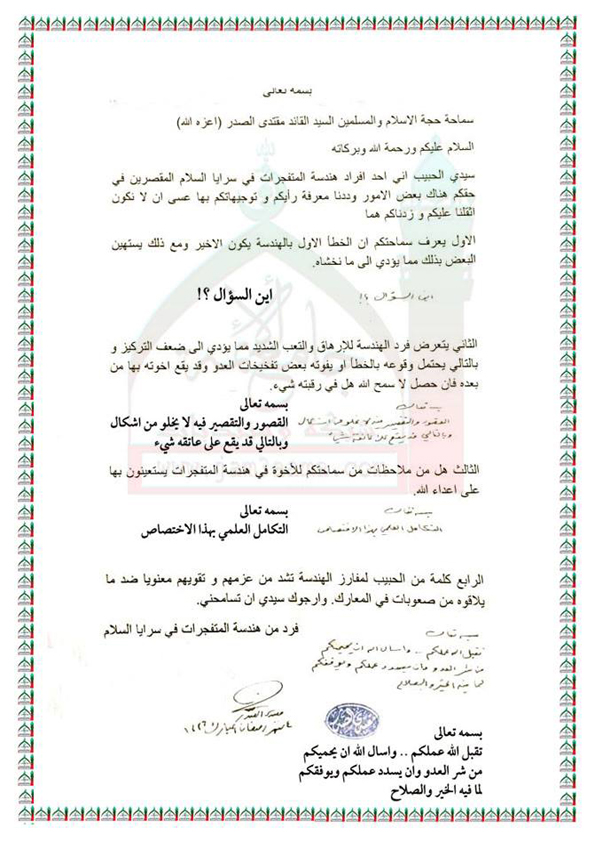 بسمه تعالى
سماحة حجة الاسلام والمسلمين السيد القائد مقتدى الصدر (اعزه الله)
السلام عليكم ورحمة الله وبركاته
سيدي الحبيب اني احد افراد هندسة المتفجرات في سرايا السلام المقصرين في
حقكم هناك بعض الامور وددنا معرفة رأيكم و توجيهاتكم بها عسى ان لا نكون
اثقلنا عليكم و زدناكم هما
الاول يعرف سماحتكم ان الخطأ الاول بالهندسة يكون الاخير ومع ذلك يستهين
البعض بذلك مما يؤدي الى ما نخشاه.
اين السؤال ؟!
اين السؤال ؟!
الثاني يتعرض فرد الهندسة للإرهاق والتعب الشديد مما يؤدي الى ضعف التركيز و
بالتالي يحتمل وقوعه بالخطأ او يفوته بعض تفخيخات العدو وقد يقع اخوته بها من
بعده فان حصل لا سمح الله هل في رقبته شيء.
بسمه تعالى
القصور والتقصير فيه لا يخلو من اشكال
وبالتالي قد يقع على عاتقه شيء
بسمه تعالى
القصور والتقصير فيه لا يخلو من اشكال
وبالتالي قد يقع على عاتقه شيء
الثالث هل من ملاحظات من سماحتكم للأخوة في هندسة المتفجرات يستعينون بها
على اعداء الله.
بسمه تعالى
التكامل العلمي بهذا الاختصاص
بسمه تعالى
التكامل العلمي بهذا الاختصاص
الرابع كلمة من الحبيب لمفارز الهندسة تشد من عزمهم و تقويهم معنويا ضد ما
يلاقوه من صعوبات في المعارك. وارجوك سيدي ان تسامحني.
فرد من هندسة المتفجرات في سرايا السلام
بسمه تعالى
تقبل الله عملكم .. واسال الله ان يحميكم
من شر العدو وان يسدد عملكم ويوفقكم
لما فيه الخير والصلاح
مقتدى الصدر
بسمه تعالى
تقبل الله عملكم .. واسال الله ان يحميكم
من شر العدو وان يسدد عملكم ويوفقكم
لما فيه الخير والصلاح